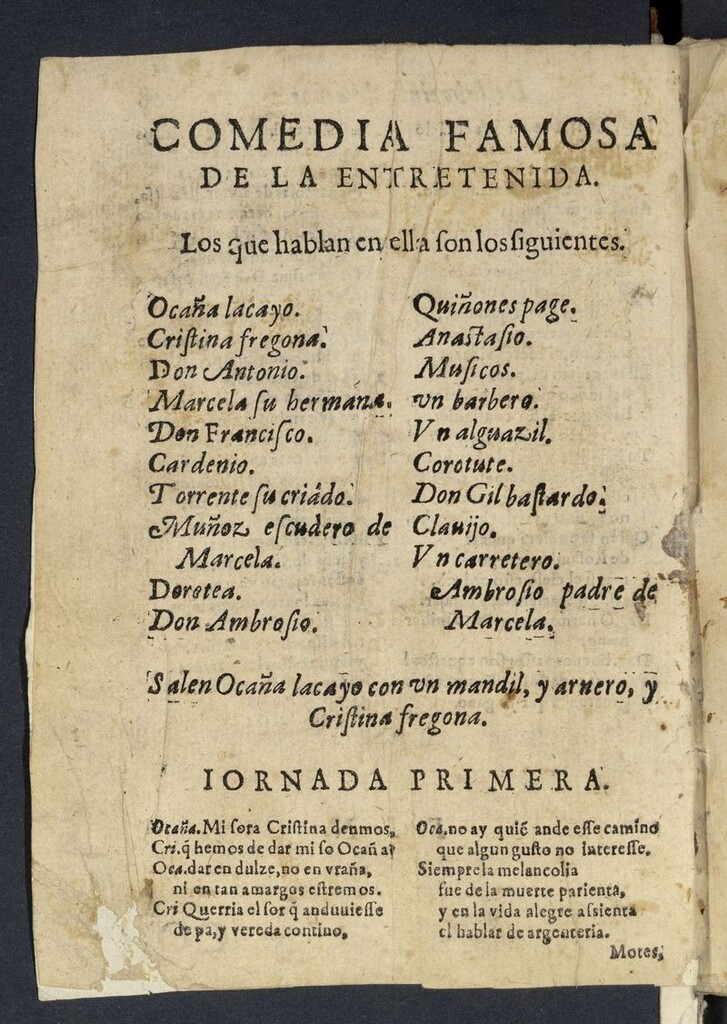 COMEDIA FAMOSA
DE LA ENTRETENIDA.
Los que hablan en ella ſon los ſiguientes.
Ocaña lacayo.
Criſtina fregona.
Don Antonio.
Marcela ſu hermana.
Don Franciſco.
Cardenio.
Torrente ſu criádo.
Muñoz eſcudero de
Marcela.
Dorotea.
Don Ambroſio.
Quiñones page.
Anaſtaſio.
Muſicos.
vn barbero.
Vn alguazil.
Corotute.
Don Gil baſtardo.
Clauijo.
Vn carretero.
Ambroſio padre de
Marcela.
Salen Ocaña lacayo con vn mandil, y arnero, y
Criſtina fregona.
IORNADA PRIMERA.
Ocaña. Mi ſora Criſtina denmos,
Cri. q̃ hemos de dar mi ſo Ocaña?
Oca. dar en dulze, no en vraña,
ni en tan amargos eſtremos.
Cri Querria el ſor q̃ anduuieſſe
de pa, y vereda contino,
Oca. no ay quiẽ ande eſſe camino
que algun guſto no intereſſe.
Siempre la melancolia
fue de la muerte parienta,
y en la vida alegre aſsienta
el hablar de argenteria.
Motes,